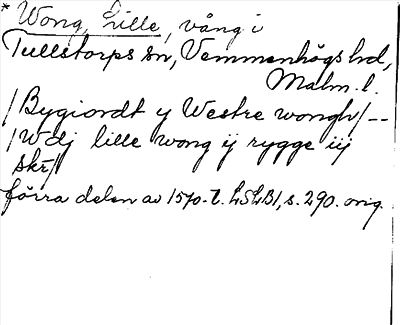 * Wong, Lille, vång i
Tullstorps sn, Vemmenhögs hd,
Malm. l.
/Bygiordt y Westre wongh/--
/Wdj lille wong ij rygge iij
skr/
förra delen av 1570-t. LSLB1, s. 290. orig.